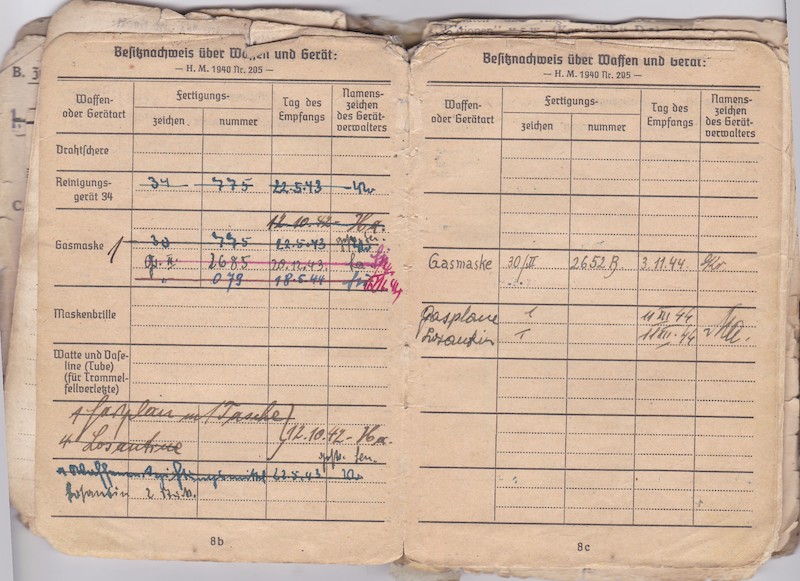 B.
C
Besitznachweis über Waffen und Gerät:
— H. M. 1940 Nr. 205 —
Waffen- oder Gerätart
Fertigungs-
zeichen
nummer
Tag des Empfangs
Namens- zeichen des Gerät- verwalters
Drahtschere
Reinigungs- gerät 34
34 775 22.5.43
12.10.42 - Ha.
Gasmaske 1 30 775 22.5.43
2685 20.12.43
" 079 18.5.44
Maskenbrille
Watte und Vase- line (Tube) (für Trommel- fellverletzte)
1 Gasplan m 1 Tasche
4 Losantine
12.10.42 - Ha.
22.5.43
Losantin 2
8b
Besitznachweis über Waffen und Gerät:
— H. M. 1940 Nr. 205 —
Waffen- oder Gerätart
Fertigungs-
zeichen
nummer
Tag des Empfangs
Namens- zeichen des Gerät- verwalters
Gasmaske 30/III 2652 B. 3.11.44.
Gasplane 1 11 III 44
Losantin 1 11 III. 44
8c